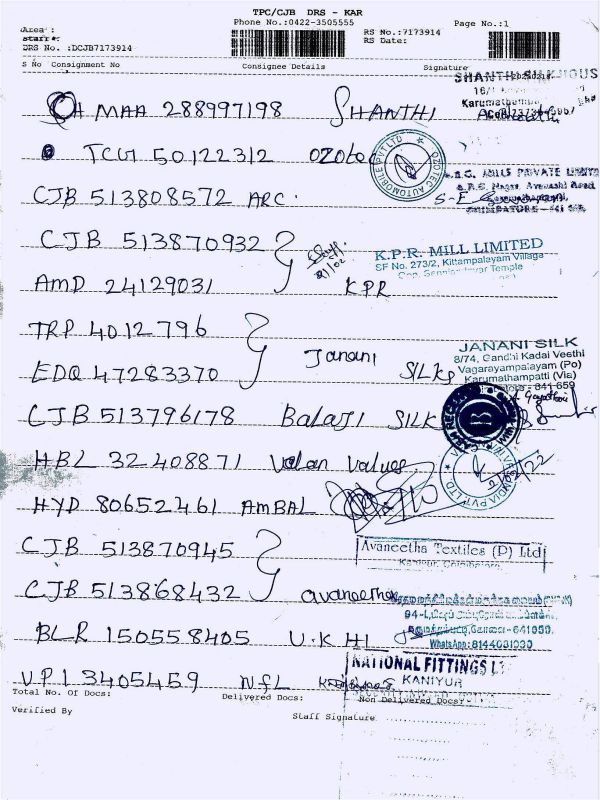 TPC/CJB DRS - KAR
Phone No.:0422-3505555
Page No.:1
Area :
Staff#:
DRS No. :DCJB7173914
RS No.:7173914
RS Date:
S No Consignment No Consignee Details Signature
SHANTHI SILK HOUS
Karumathampa
MAA 288997198 SHANTHI
TCU 50122312 OZOTEC
OZOTEC AUTOMOBILE PVT LTD
MILLS PRIVATE LIMITED
CJB 513808572 ARC.
CJB 513870932
K.P.R. MILL LIMITED
SF No. 273/2, Kittampalayam Village
AMD 24129031 KPR
TRP 4012796
JANANI SILK
8/74, Gandhi Kadai Veethi
Vagarayampalayam (Po)
Karumathampatti (Via)
641 659
Janani SILKS
EDQ 47283370
CJB 513796178 BALAJI SILK
HBL 32408871 Valan Valves
HYD 80652461 AMBAL
CJB 513870945
Avaneetha Textiles (P) Ltd
CJB 513868432 avaneetha
641659.
WhatsApp:8144001030
BLR 150558405 U.K HI
NATIONAL FITTINGS L
KANIYUR
VPI 3405459 NFL
Total No. Of Docs: Delivered Docs: Non Delivered Docs:
Verified By Staff Signature